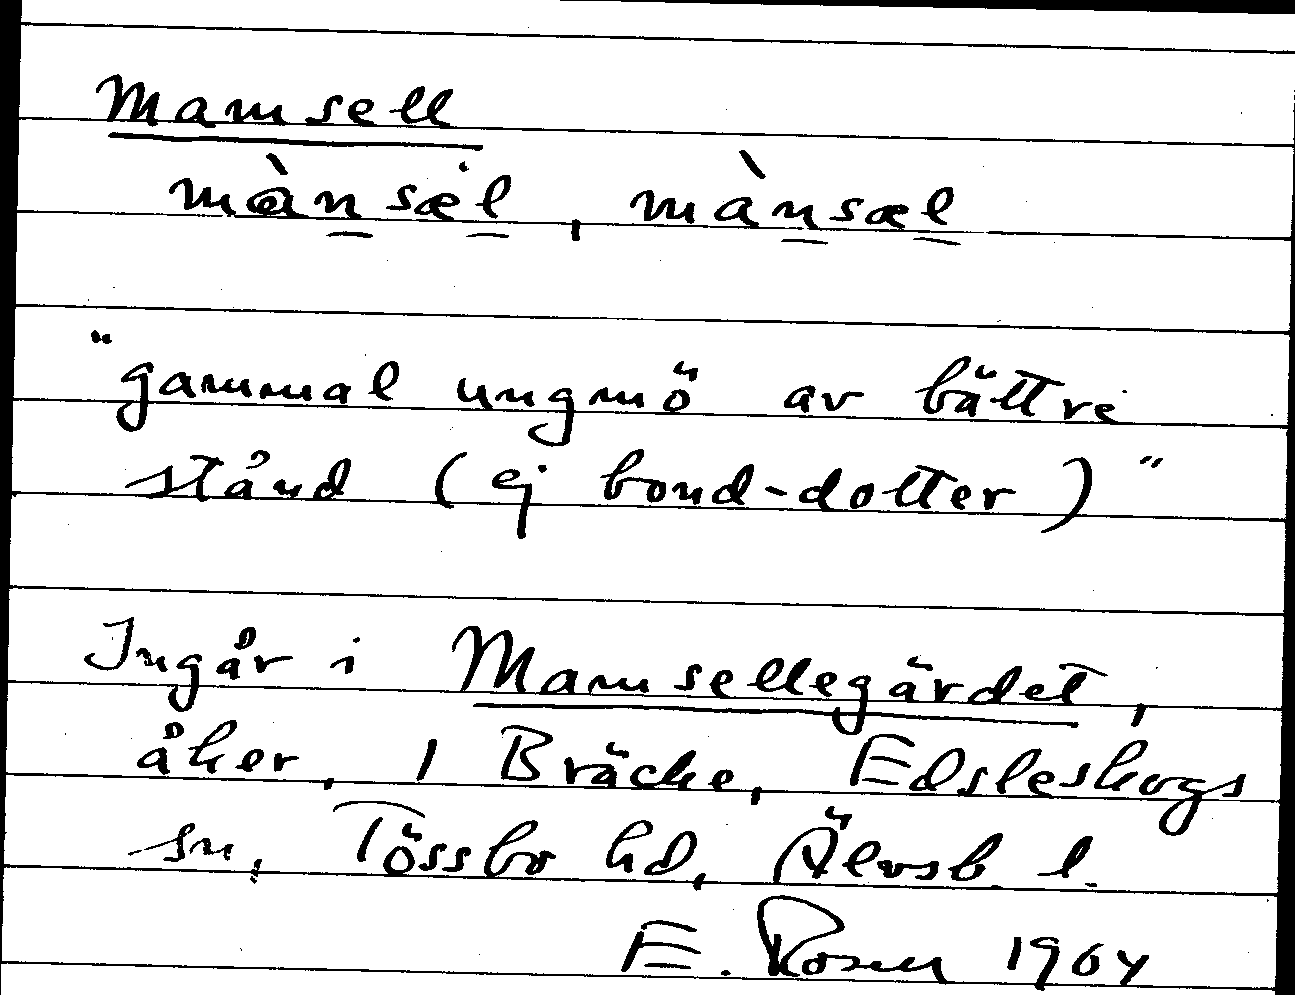 Mamsell
mànsæl, mànsæl
"gammal ungmö av bättre
stånd (ej bond-dotter)"
Ingår i Mamsellegärdet,
åker, 1 Bräcke, Edsleskogs
sn, Tössbo hd, Älvsb. l.
E. Rosen 1964